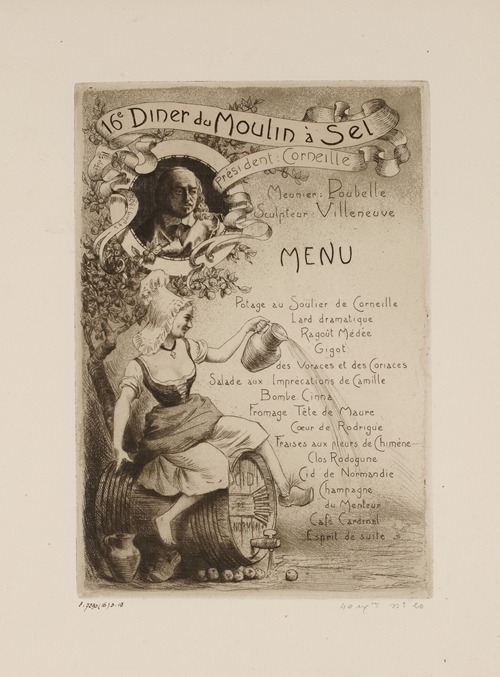 16e Diner du Moulin à Sel
Président : Corneille
Meunier : Poubelle
Sculpteur : Villeneuve
MENU
Potage au Soulier de Corneille
Lard dramatique
Ragoût Médée
Gigot
des Voraces et des Coriaces
Salade aux Imprécations de Camille
Bombe Cinna
Fromage Tête de Maure
Cœur de Rodrigue
Fraises aux pleurs de Chimène
Clos Rodogune
Cid de Normandie
Champagne
du Menteur
Café Cardinal
Esprit de suite
CIDRE
DE